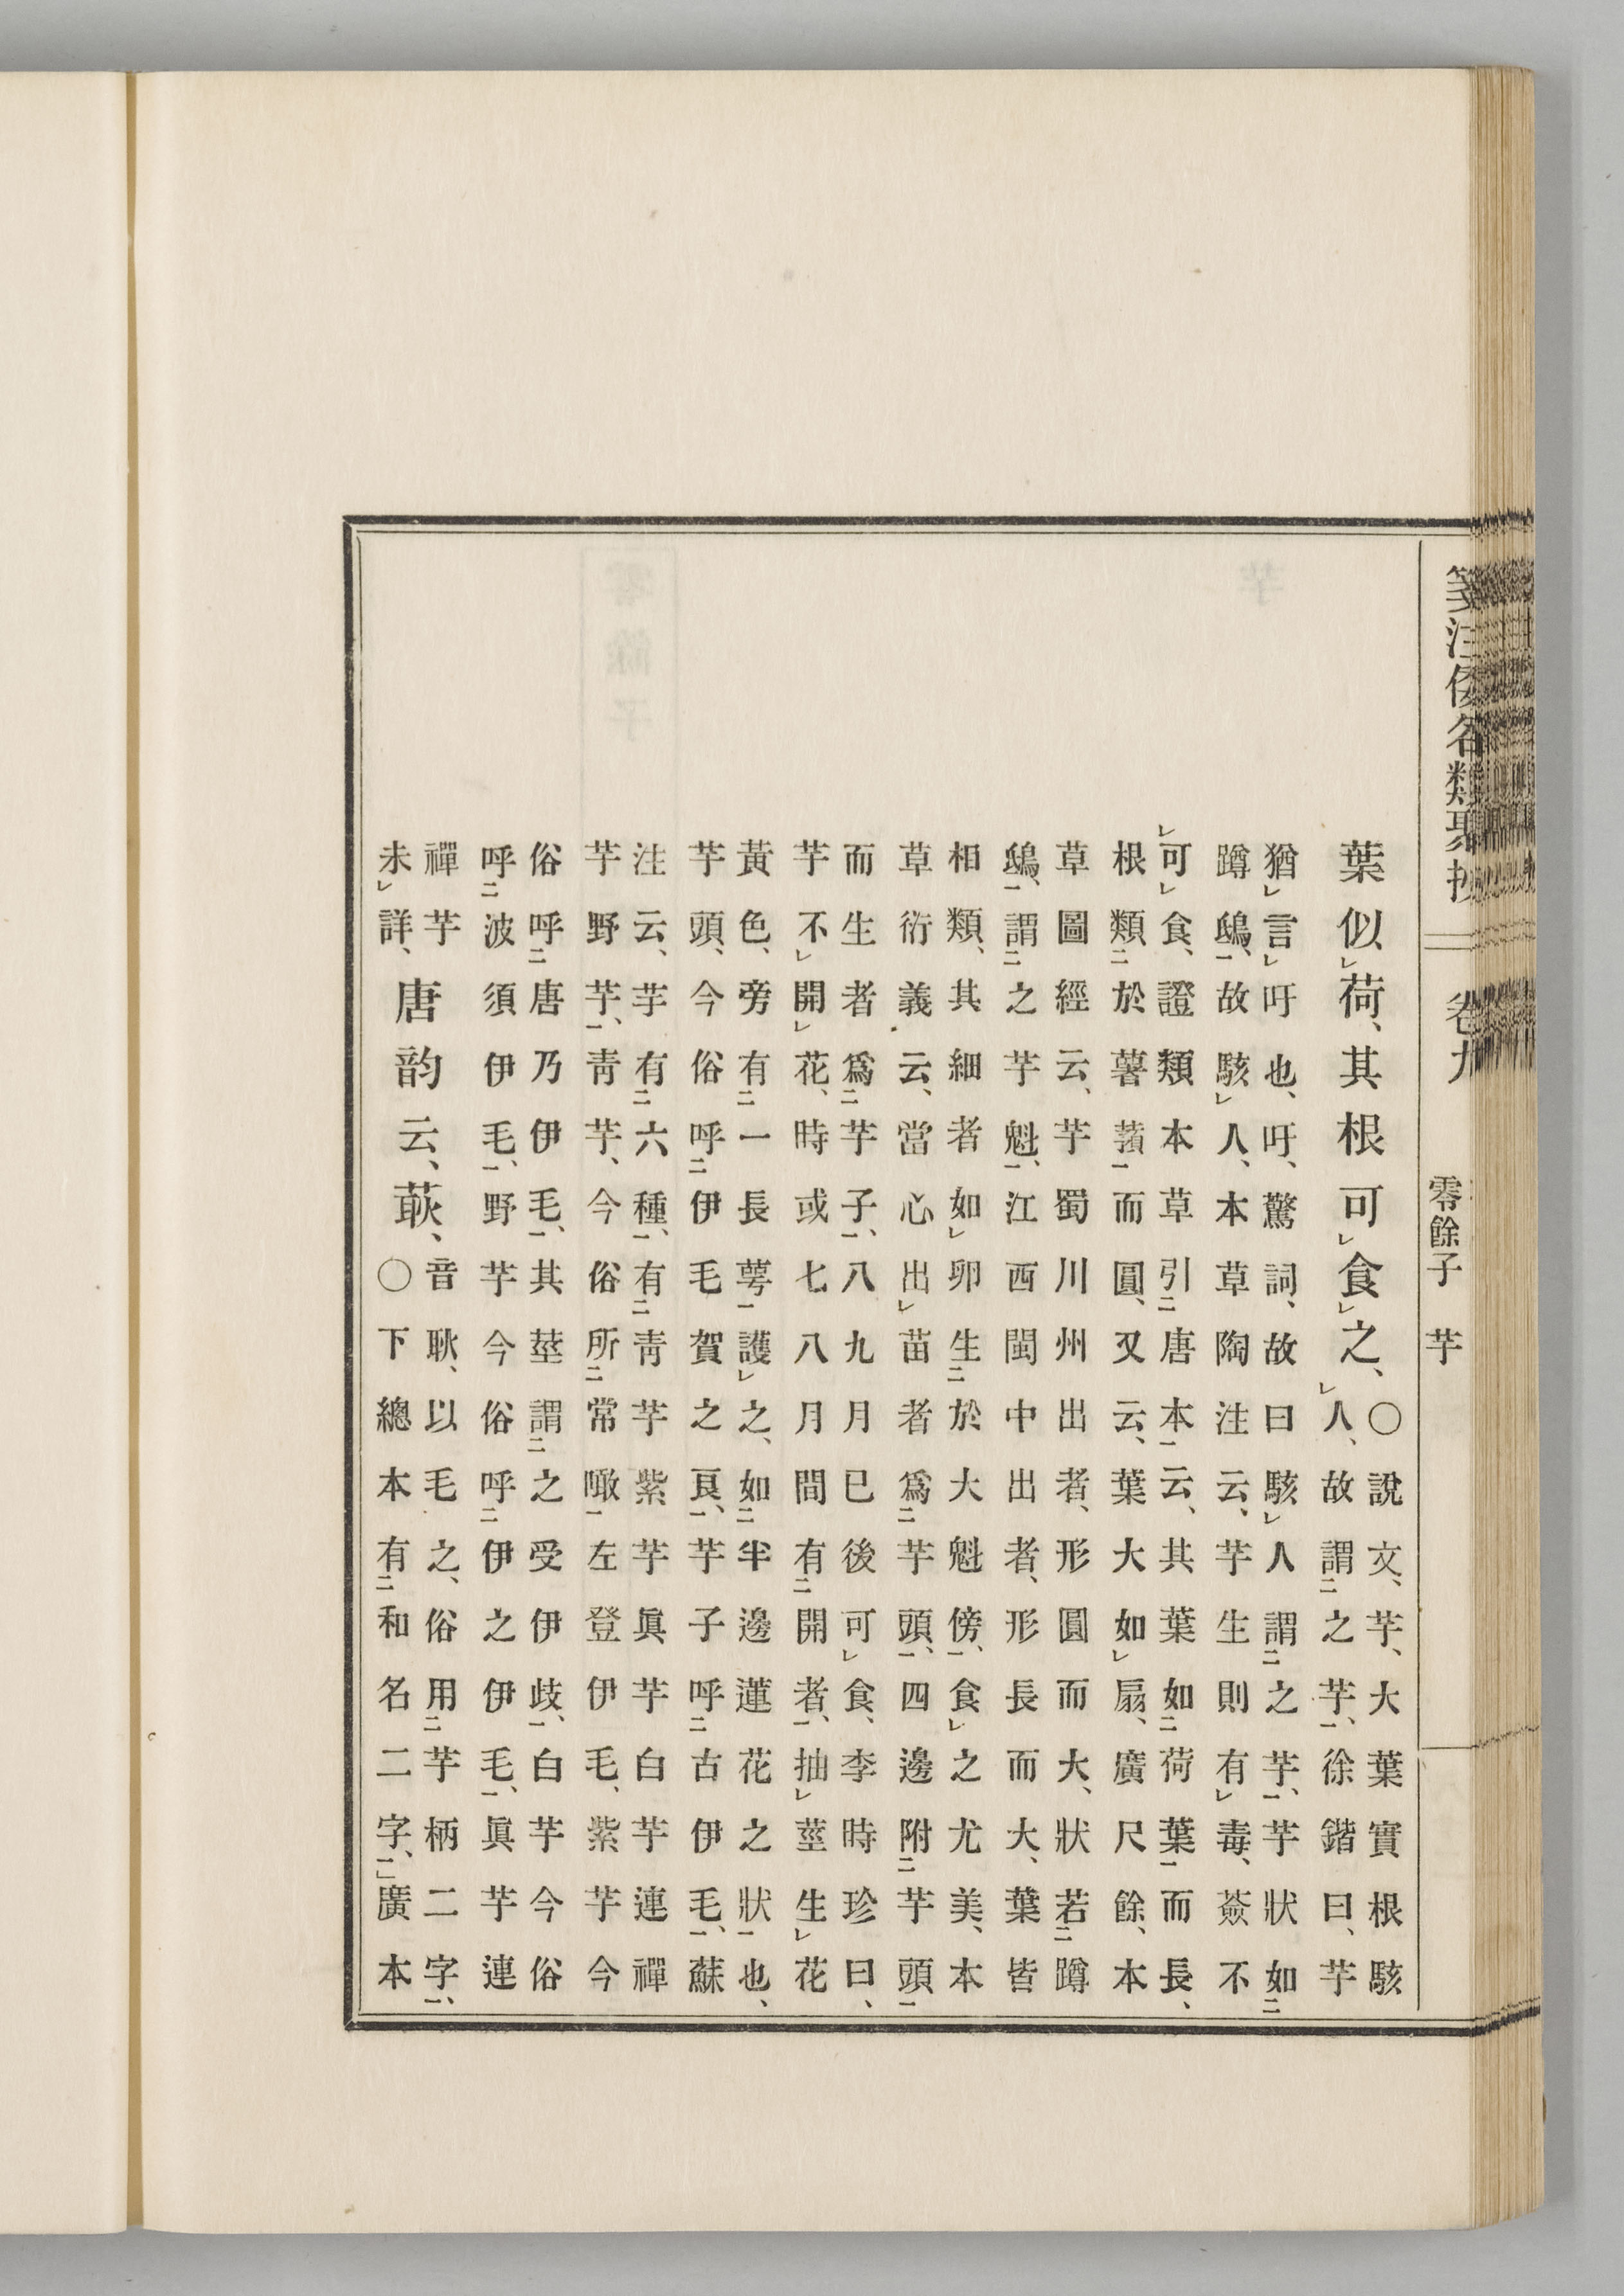 箋注倭名類聚抄 卷九 零餘子 芋
葉似荷、其根可食之、
○說文、芋、大葉實根駭
人、故謂之芋、徐鍇曰、芋
猶言吁也、吁、驚詞、故曰駭人謂之芋、芋狀如
蹲鴟、故駭人、本草陶注云、芋生則有毒、薟不
可食、證類本草引唐本云、其葉如荷葉而長、
根類於薯蕷而圓、又云、葉大如扇、廣尺餘、本
草圖經云、芋蜀川州出者、形圓而大、狀若蹲
鴟、謂之芋魁、江西閩中出者、形長而大、葉皆
相類、其細者如卵生於大魁傍、食之尤美、本
草衍義云、當心出苗者爲芋頭、四邊附芋頭
而生者爲芋子、八九月已後可食、李時珍曰、
芋不開花、時或七八月間有開者、抽莖生花
黃色、旁有一長萼護之、如半邊蓮花之狀也、
芋頭、今俗呼伊毛賀之良、芋子呼古伊毛、蘇
注云、芋有六種、有靑芋紫芋眞芋白芋連禪
芋野芋、靑芋、今俗所常噉左登伊毛、紫芋今
俗呼唐乃伊毛、其莖謂之受伊歧、白芋今俗
呼波須伊毛、野芋今俗呼伊之伊毛、眞芋連
禪芋
未詳、
唐韵云、
音耿、以毛之、俗用芋柄二字、
○下總本有和名二字、廣本